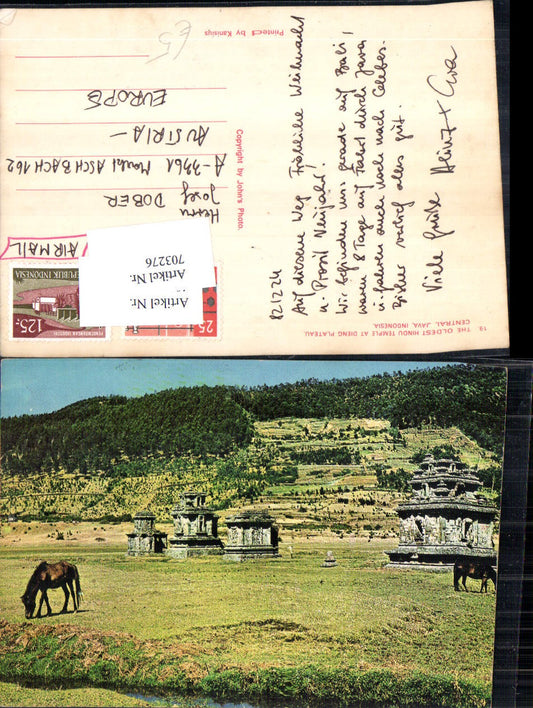 19 THE OLDEST HINDU TEMPLE AT DIENG PLATEAU,
CENTRAL JAVA, INDONESIA.
Auf diesem Weg Fröhliche Weihnacht
u. Prosit Neujahr!
Wir befinden uns gerade auf Bali!
waren 8 Tage auf Fahrt durch Java
u. fahren auch noch nach Celebes.
Bisher verlief alles gut.
Viele Grüße
Copyright by John's Photo.
Printed by Kanisius
AIR MAIL
Herrn
Josef DOBER
A-3361 Markt ASCHBACH 162
AUSTRIA -
EUROPE
£5
REPUBLIK INDONESIA
125.-
25
Artikel Nr.
Artikel Nr.
703276